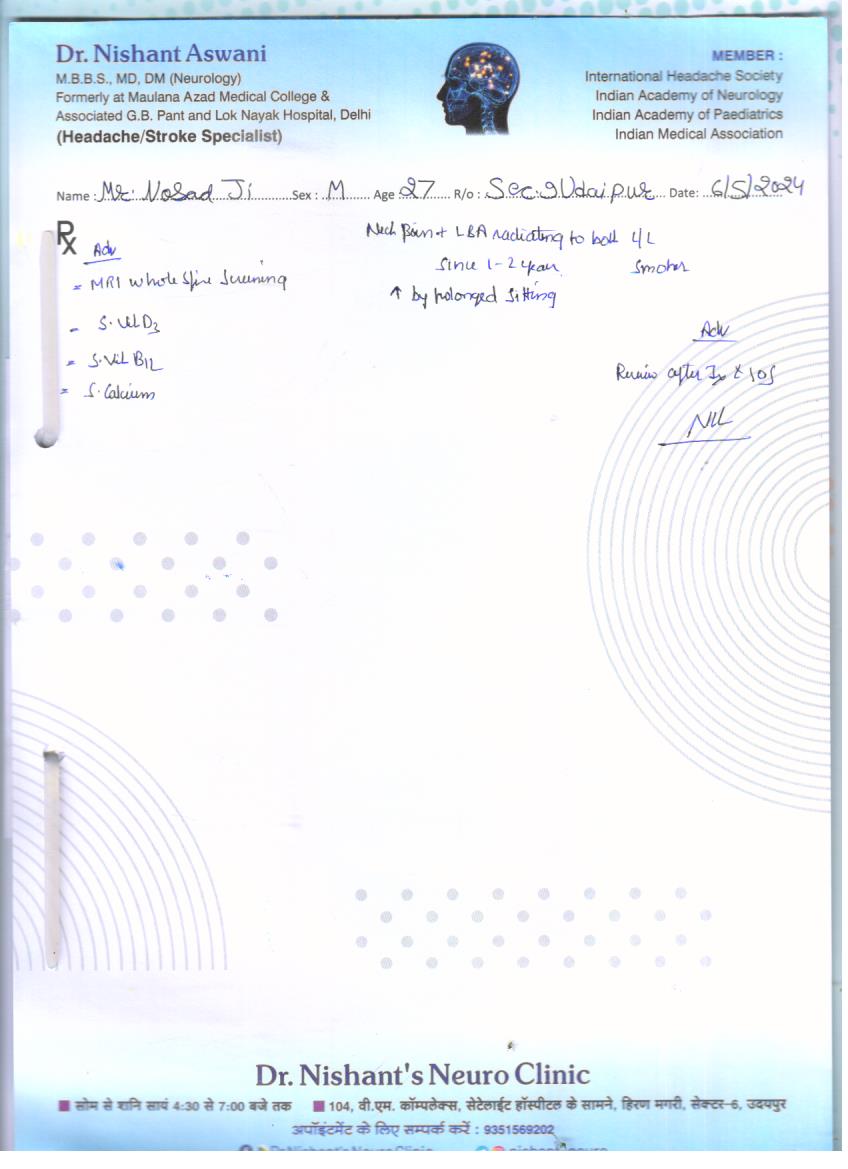 Dr. Nishant Aswani
M.B.B.S., MD, DM (Neurology)
Formerly at Maulana Azad Medical College &
Associated G.B. Pant and Lok Nayak Hospital, Delhi
(Headache/Stroke Specialist)
MEMBER :
International Headache Society
Indian Academy of Neurology
Indian Academy of Paediatrics
Indian Medical Association
Name : Mr. Nosad Ji Sex : M Age 27 R/o : Sec. 9 Udaipur Date: 6/5/2024
Rx
Adv
- MRI whole Spine Screening
- S. Vit D3
- S. Vit B12
- S. Calcium
Neck Pain + LBA radiating to both L/L
Since 1-2 year Smoker
↑ by prolonged Sitting
Adv
Review after Ix & SOS
Dr. Nishant's Neuro Clinic
सोम से शनि सायं 4:30 से 7:00 बजे तक 104, वी.एम. कॉम्पलेक्स, सेटेलाईट हॉस्पीटल के सामने, हिरण मगरी, सेक्टर-6, उदयपुर
अपॉइंटमेंट के लिए सम्पर्क करें : 9351569202